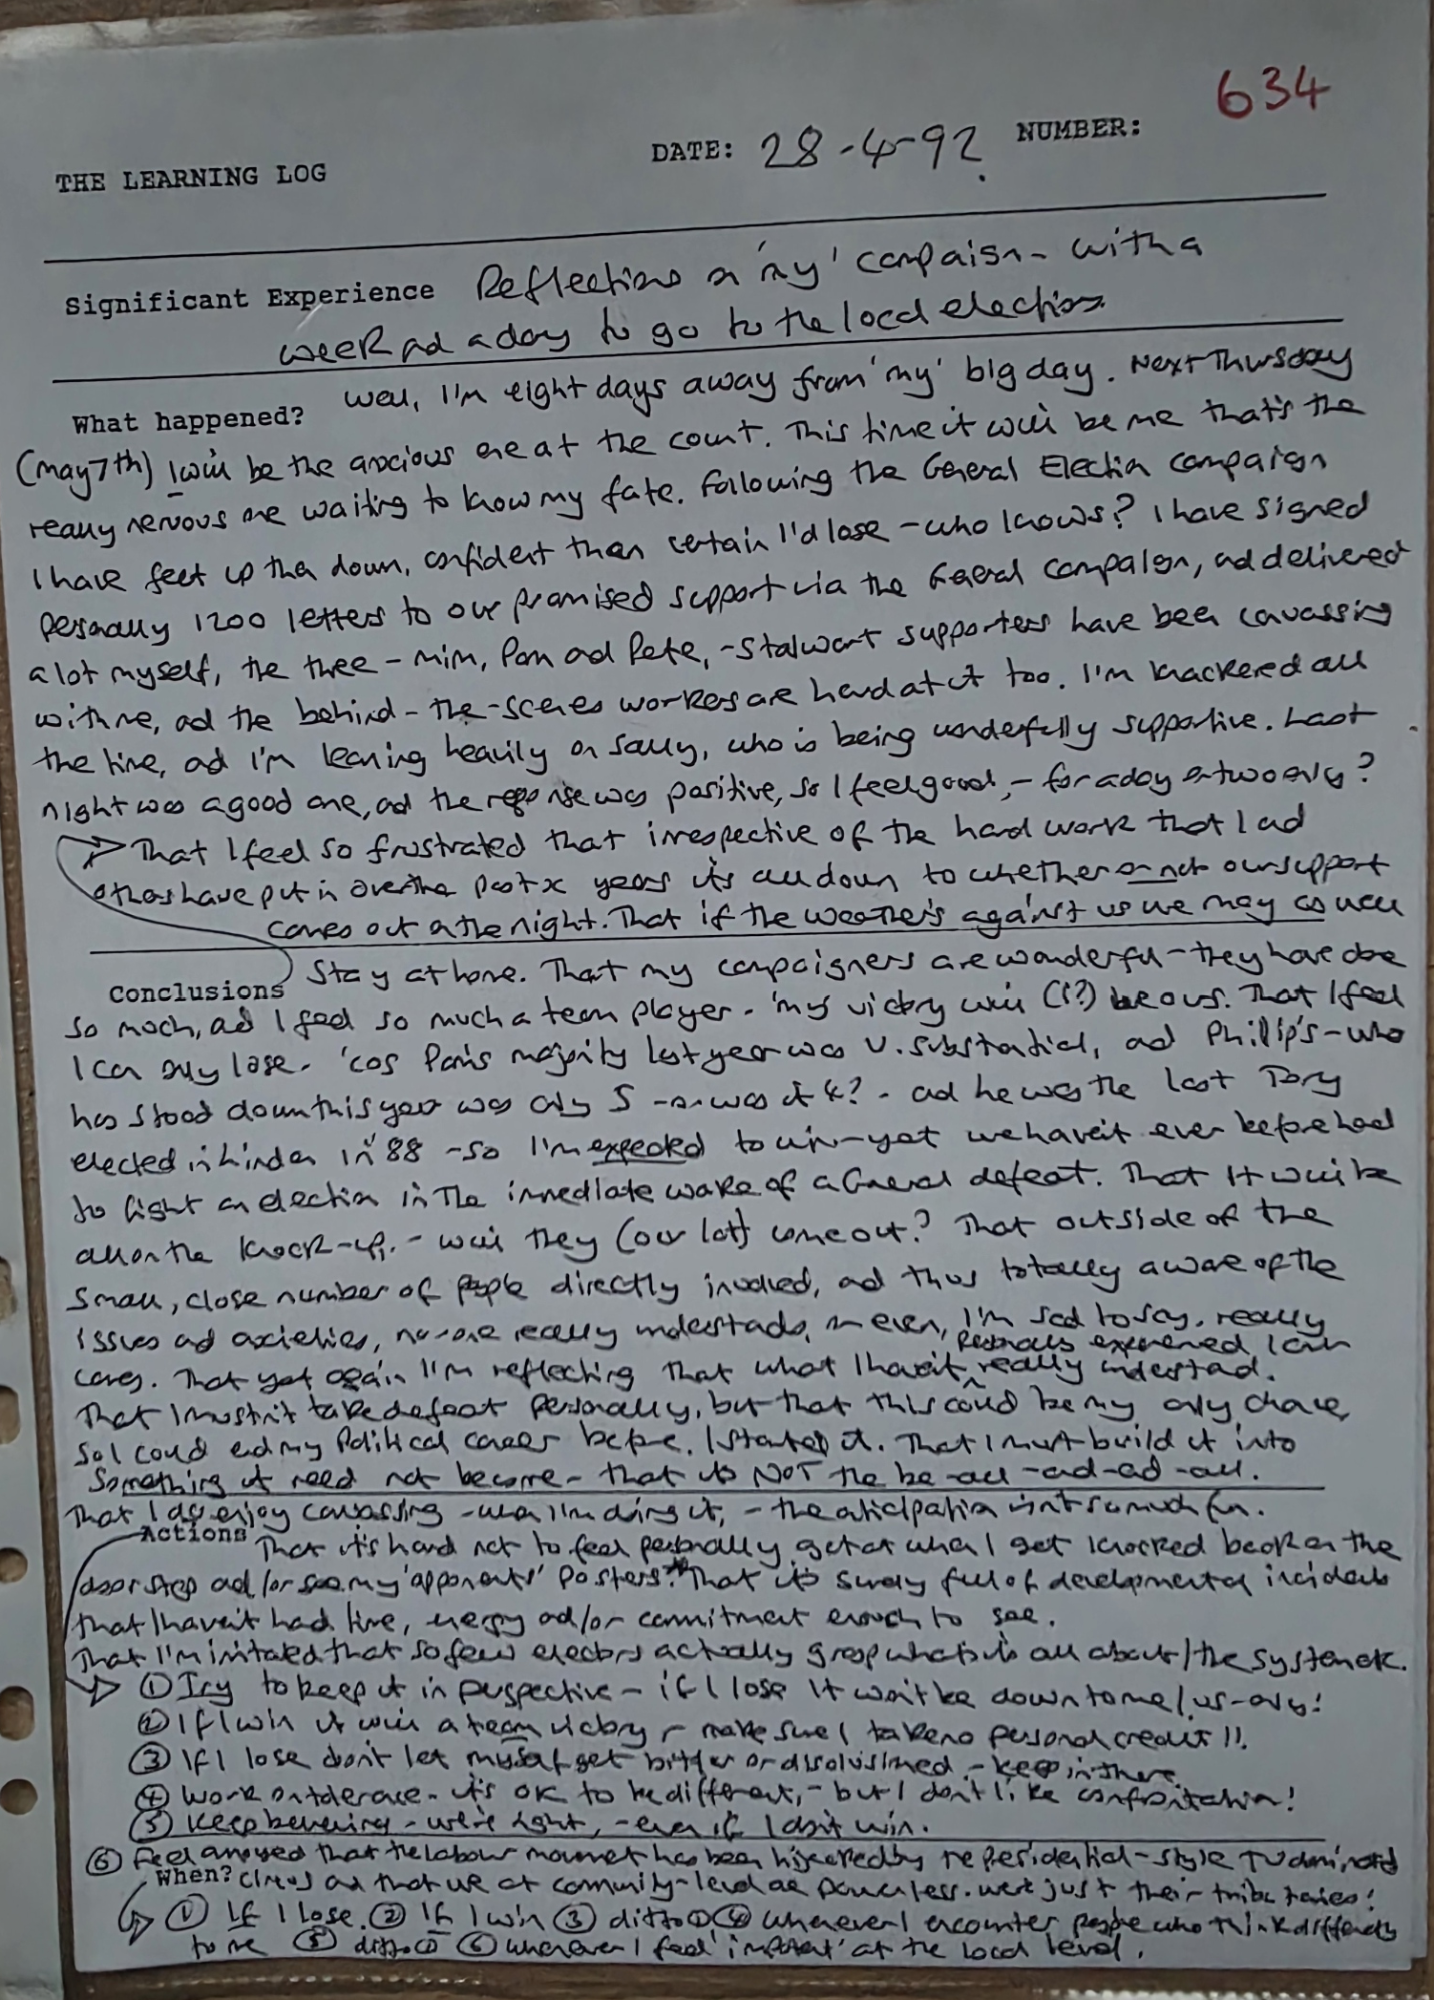 634
THE LEARNING LOG DATE: 28-4-92. NUMBER:
Significant Experience Reflections on 'my' campaign - with a
week and a day to go to the local elections
What happened? Well, I'm eight days away from 'my' big day. Next Thursday
(May 7th) I will be the anxious one at the count. This time it will be me that's the
really nervous one waiting to know my fate. Following the General Election campaign
I have feet up then down, confident then certain I'd lose - who knows? I have signed
personally 1200 letters to our promised support via the General campaign, and delivered
a lot myself, the three - Mim, Pam and Pete, - stalwart supporters have been canvassing
with me, and the behind-the-scenes workers are hard at it too. I'm knackered all
the time, and I'm leaning heavily on Sally, who is being wonderfully supportive. Last
night was a good one, and the response was positive, so I feel good, - for a day or two only?
That I feel so frustrated that irrespective of the hard work that I and
others have put in over the past x years it's all down to whether or not our support
comes out on the night. That if the weather's against us we may as well
Conclusions Stay at home. That my campaigners are wonderful - they have done
so much, and I feel so much a team player. 'my victory will (!?) be ours. That I feel
I can only lose. 'cos Pam's majority last year was v. substantial, and Phillip's - who
has stood down this year was only 5 - or was it 4? - and he was the last Tory
elected in Linden in '88 - so I'm expected to win - yet we haven't ever before had
to fight an election in the immediate wake of a General defeat. That it will be
all on the knock-up. - will they (our lot) come out? That outside of the
small, close number of people directly involved, and thus totally aware of the
issues and anxieties, no-one really understands, or even, I'm sad to say, really
cares. That yet again I'm reflecting that what I haven't personally experienced I can really understand.
That I mustn't take defeat personally, but that this could be my only chance,
so I could end my Political career before I started it. That I must build it into
something it need not become - that it's NOT the be-all-and-end-all.
That I do enjoy canvassing - when I'm doing it, - the anticipation isn't so much fun.
Actions That it's hard not to feel personally got at when I get knocked back on the
doorstep and/or see my 'opponents' posters. That it's surely full of developmental incidents
that I haven't had time, energy and/or commitment enough to see.
That I'm irritated that so few electors actually grasp what it's all about/the system etc.
① Try to keep it in perspective - if I lose it won't be down to me/us - only!
② If I win it will a team victory - make sure I take no personal credit!!
③ If I lose don't let myself get bitter or disillusioned - keep in there
④ Work on tolerance - it's OK to be different, - but I don't like confrontation!
⑤ Keep believing - we're right, - even if I don't win.
⑥ Feel annoyed that the labour movement has been hijacked by the presidential-style TV dominated
When? and that we at community-level are powerless. We're just their
① If I lose. ② If I win ③ ditto ① ④ Whenever I encounter people who think differently
to me ⑤ ditto ① ⑥ Whenever I feel 'impotent' at the local level.